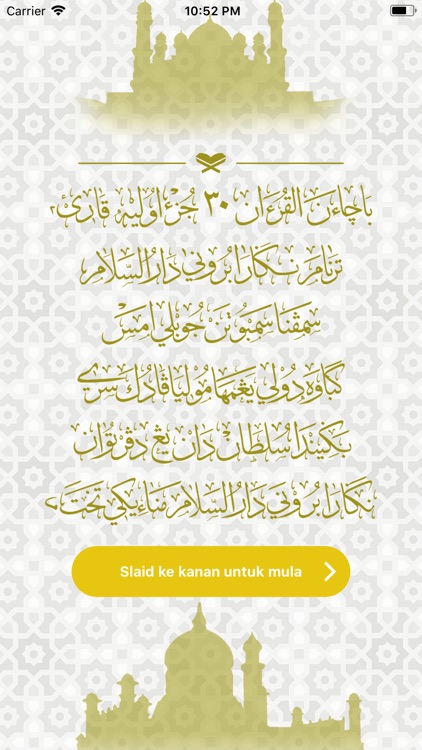 Carrier
10:52 PM
باچاءن القرءان ٣٠ جزء اوليه قارئ٢
ترنام نݢارا بروني دارالسلام
سمڤنا سمبوتن جوبلي امس
كباوه دولي يڠمها موليا ڤادوك سري
بݢيندا سلطان دان يڠ دڤرتوان
نݢارا بروني دارالسلام مناءيكي تخت
Slaid ke kanan untuk mula